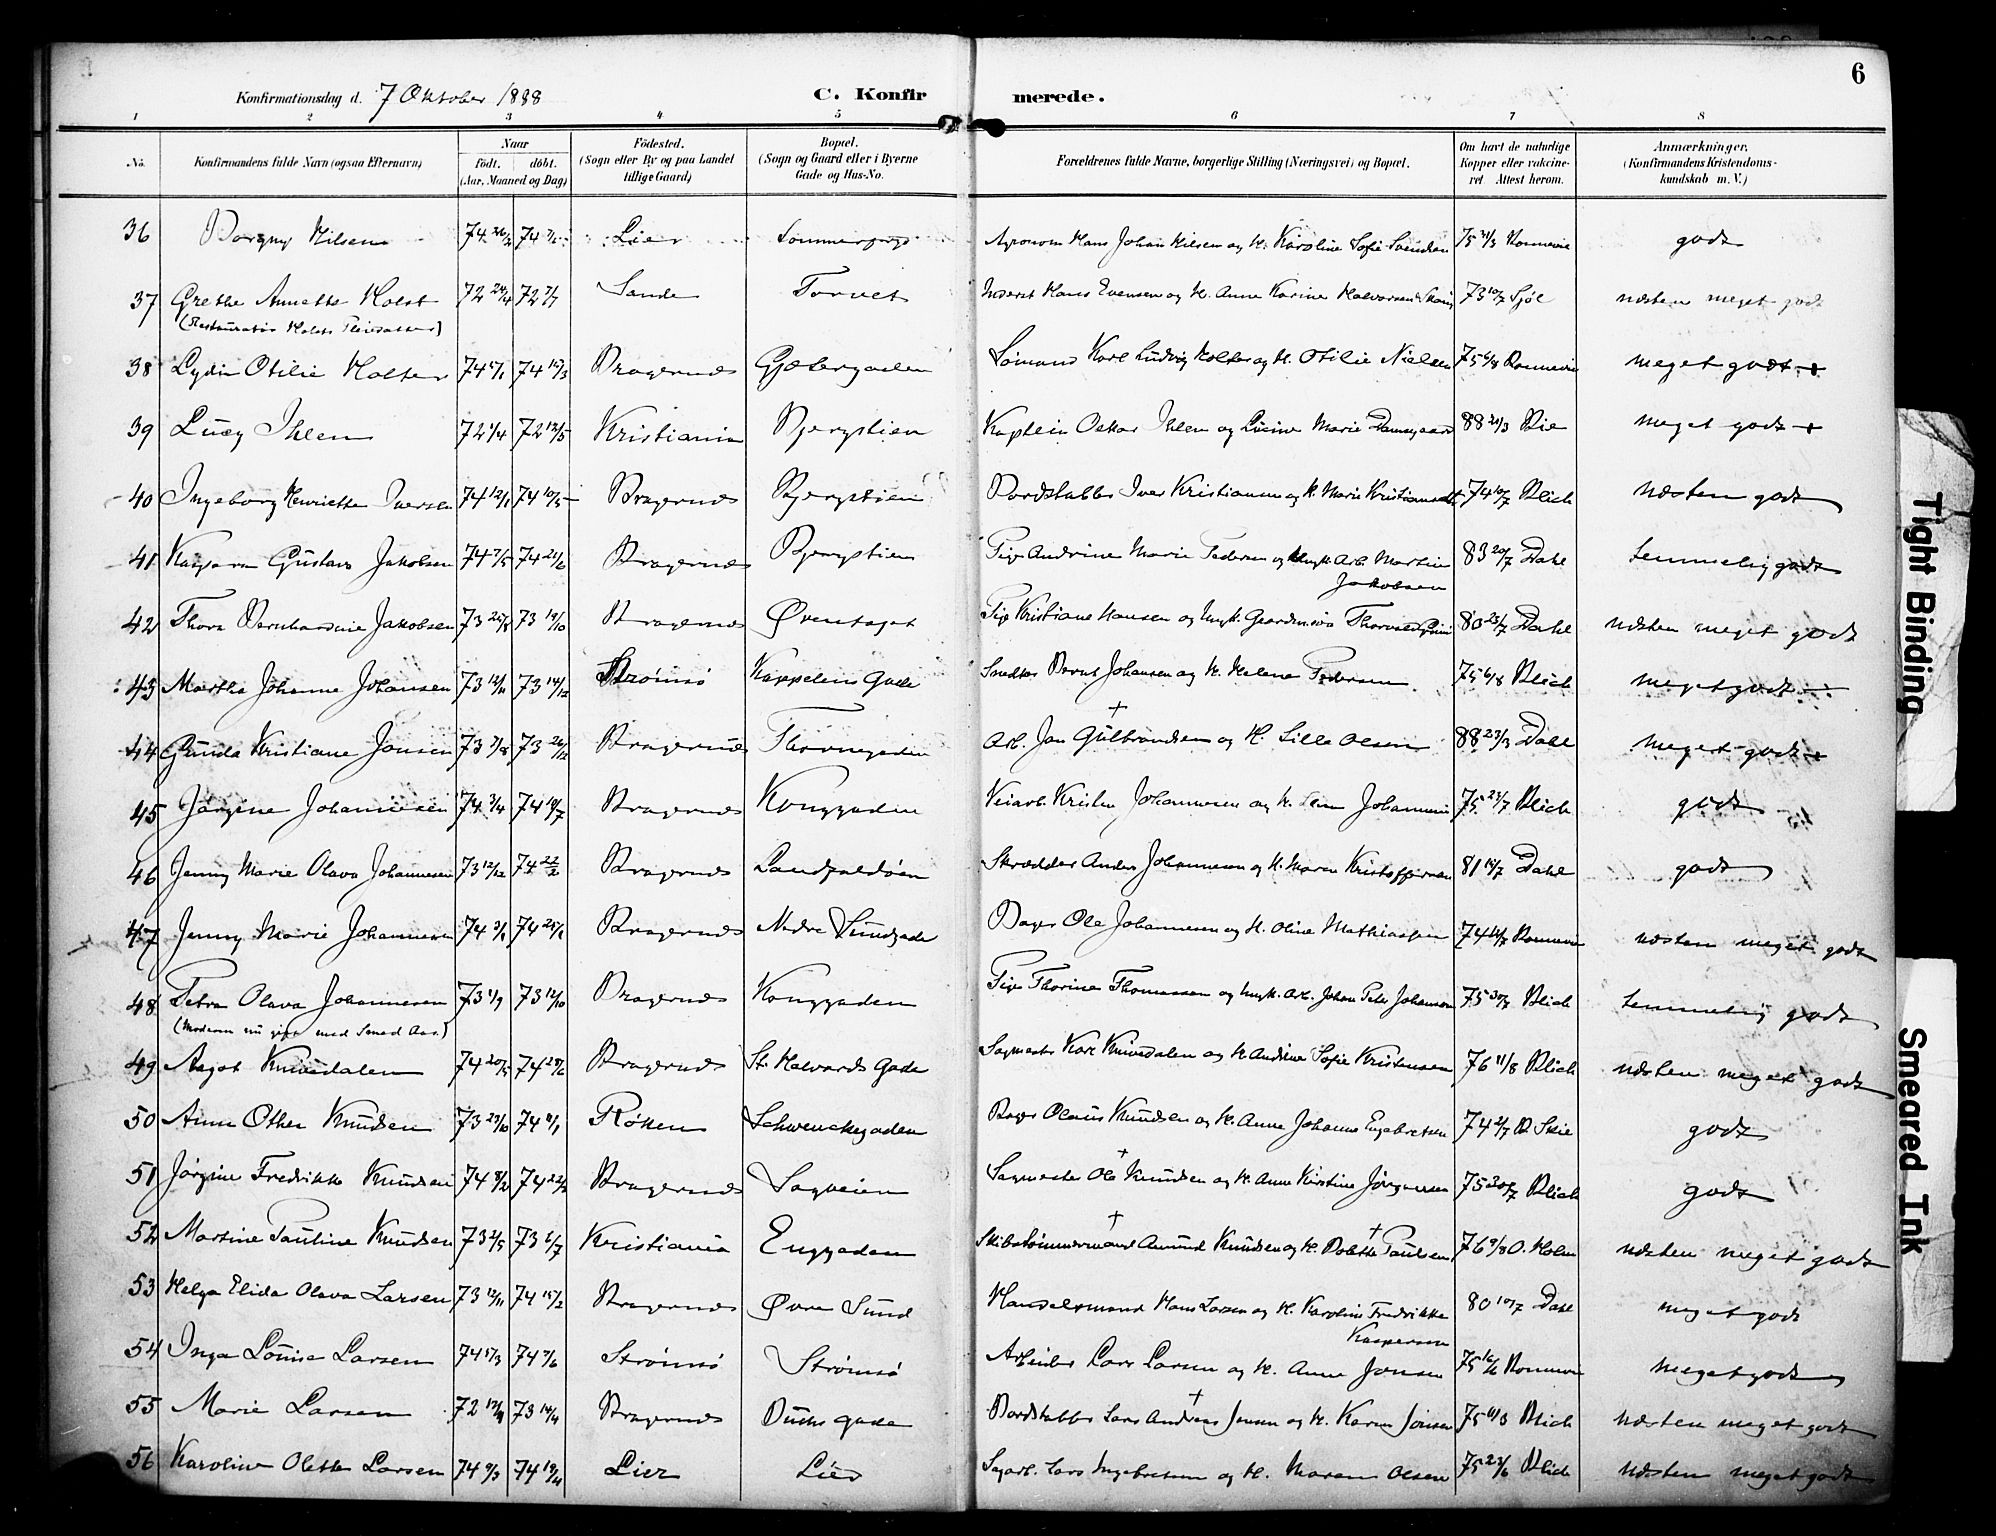 6
Konfirmationsdag d. 7 Oktober 1888 C. Konfirmerede.
1 2 3 4 5 6 7 8
No. Konfirmandens fulde Navn (ogsaa Efternavn) Naar født. døbt. (Aar, Maaned og Dag) Fødested. (Sogn eller By og paa Landet tillige Gaard) Bopæl. (Sogn og Gaard eller i Byerne Gade og Hus-No. Forældrenes fulde Navne, borgerlige Stilling (Næringsvei) og Bopæl. Om havt de naturlige Kopper eller vakcineret. Attest herom. Anmærkninger. (Konfirmandens Kristendomskundskab m. V.)
36 Borgny Nilsen 74 74 Lier Agronom Hans Johan Nilsen og H. Karoline Sofie Svendsen 75 31/3 godt
37 Grethe Annette Holst 72 24/4 72 7/7 Sande Torvet Hans Evensen og H. Anne Karine Halvorsen 73 10/7 næsten meget godt
(Restauratør Holsts Pleiedatter)
38 Lydia Otilie Holter 74 74 Bragernæs Gjetergaden Sømand Karl Ludvig Holter og H. Otilie Nielsen 75 6/8 meget godt +
39 Lucy Ihlen 72 1/4 72 12/5 Kristiania Bjergstien Kaptein Oskar Ihlen og Lucine Marie 88 21/3 meget godt +
40 Ingeborg Henriette Iversen 74 12/1 74 10/5 Bragernæs Bjergstien Bordstabler Iver Kristiansen og H. Marie 74 10/7 Blich Næsten godt
41 Gustava Jakobsen 74 7/5 74 21/6 Bragernæs Bjergstien Pige Andrine Marie Pedersen og Ungk. Arb. Martin Jakobsen 83 20/7 Dahl temmelig godt
42 Thora Bernhardine Jakobsen 73 73 19/10 Bragernæs Øvensaget Pige Kristiane Hansen og Ungk. 80 23/7 Dahl næsten meget godt
43 Martha Johanne Johansen 73 12/11 73 14/12 Strømsø Kappelens Gade Snedker Bernt Johansen og H. Helene Pedersen 75 6/8 Blich meget godt
44 Gunda Kristiane Jansen 73 7/8 73 26/12 Bragernæs Thornegaden Arb. Jan Gulbrandsen † og H. Lille Olsen 88 23/3 Dahl meget godt +
45 Jørgine Johannesen 74 3/4 74 19/7 Bragernæs Konggaden Veiarb. Kristen Johannesen og H. Johannesen 75 23/7 Blich godt
46 Jenny Marie Olava Johannesen 73 12/12 74 22/2 Bragernæs Landfaldøen Skrædder Anders Johannesen og H. Maren Kristoffersen 81 Dahl godt
47 Jenny Marie Johannesen 74 3/1 74 Bragernæs Nedre Sundgade Bager Ole Johannesen og H. Oline Mathiassen 74 næsten meget godt
48 Petra Olava Johannesen 73 1/9 73 12/10 Bragernæs Konggaden Pige Thorine Thomassen og Ungk. Arb. Johan Peter Johansen 75 Blich temmelig godt
(Moderen nu gift med Smed Aas.)
49 Aagot Knivedalen 74 20/5 74 28/6 Bragernæs St. Halvards Gade Sagmester Karl Knivedalen og H. Andrine Sofie Kristensen 76 11/8 Blich næsten meget godt
50 Anna Othea Knudsen 73 23/10 74 Røken Schwenckegaden Bager Olaus Knudsen og H. Anne Johanne Engebretsen 74 2/7 godt
51 Jørgine Fredrikke Knudsen 74 8/2 74 Bragernæs Sagveien Sagmester Ole † Knudsen og H. Anne Kristine Jørgensen 75 Blich godt
52 Martine Pauline Knudsen 73 2/5 73 6/7 Kristiania Enggaden Skibstømmermand † Amund Knudsen og H. Dobette † Paulsen 76 9/8 O. Holm næsten meget godt
53 Helga Elida Olava Larsen 73 12/11 74 15/2 Bragernæs Øvre Sund Handelsmand Hans Larsen og H. Karoline Fredrikke Kaspersen 80 10/7 Dahl meget godt
54 Inga Lovise Larsen 74 17/3 74 7/6 Strømsø Strømsø Arbeider Lars Larsen og H. Anne Jonsen 75 16/6 meget godt
55 Marie Larsen 72 73 14/4 Bragernæs Buchs gade Bordstabler Lars Andreas † Jensen og H. Karen Jonsen 75 Blich næsten meget godt
56 Karoline Olette Larsen 74 9/3 74 19/4 Lier Lier Sagarb. Lars Ingebretsen og H. Maren Olsen 75 23/6 Blich næsten meget godt
Tight Binding
Smeared Ink